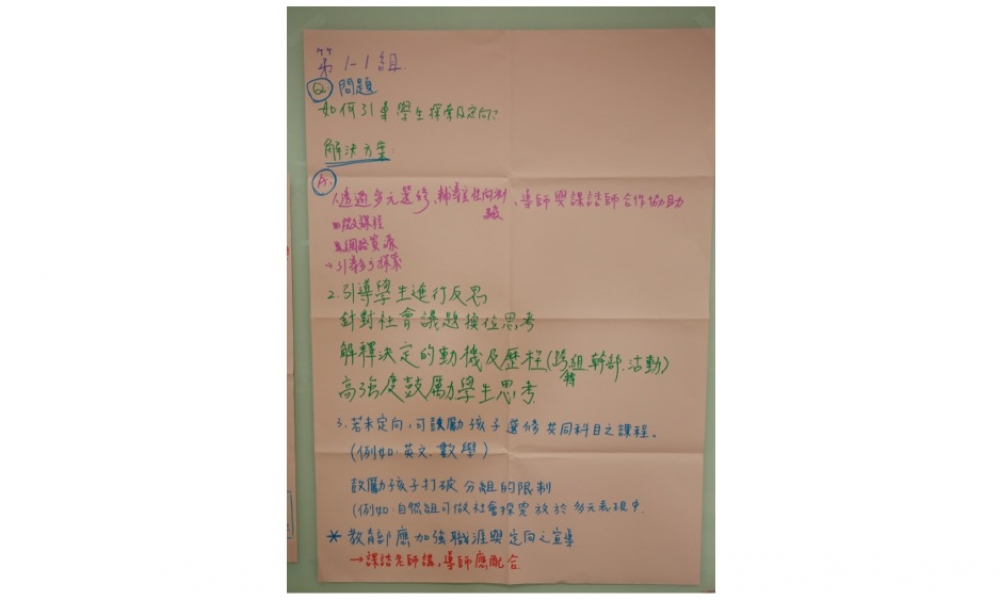 第1-1組
Q 問題
如何引導學生探索及定向?
解決方案:
A.
1.透過多元選修、輔導室性向測驗、導師與課諮師合作協助
微課程
網路資源
→引導多方探索
2.引導學生進行反思
針對社會議題換位思考
解釋決定的動機及歷程(選組 幹部.活動)
轉
高強度鼓勵學生思考.
3.若未定向,可鼓勵孩子選修共同科目之課程。
(例如:英文.數學)
鼓勵孩子打破分組的限制
(例如:自然組可做社會探究放於多元表現中.
* 教育部應加強職涯與定向之宣導
→課諮老師講,導師應配合